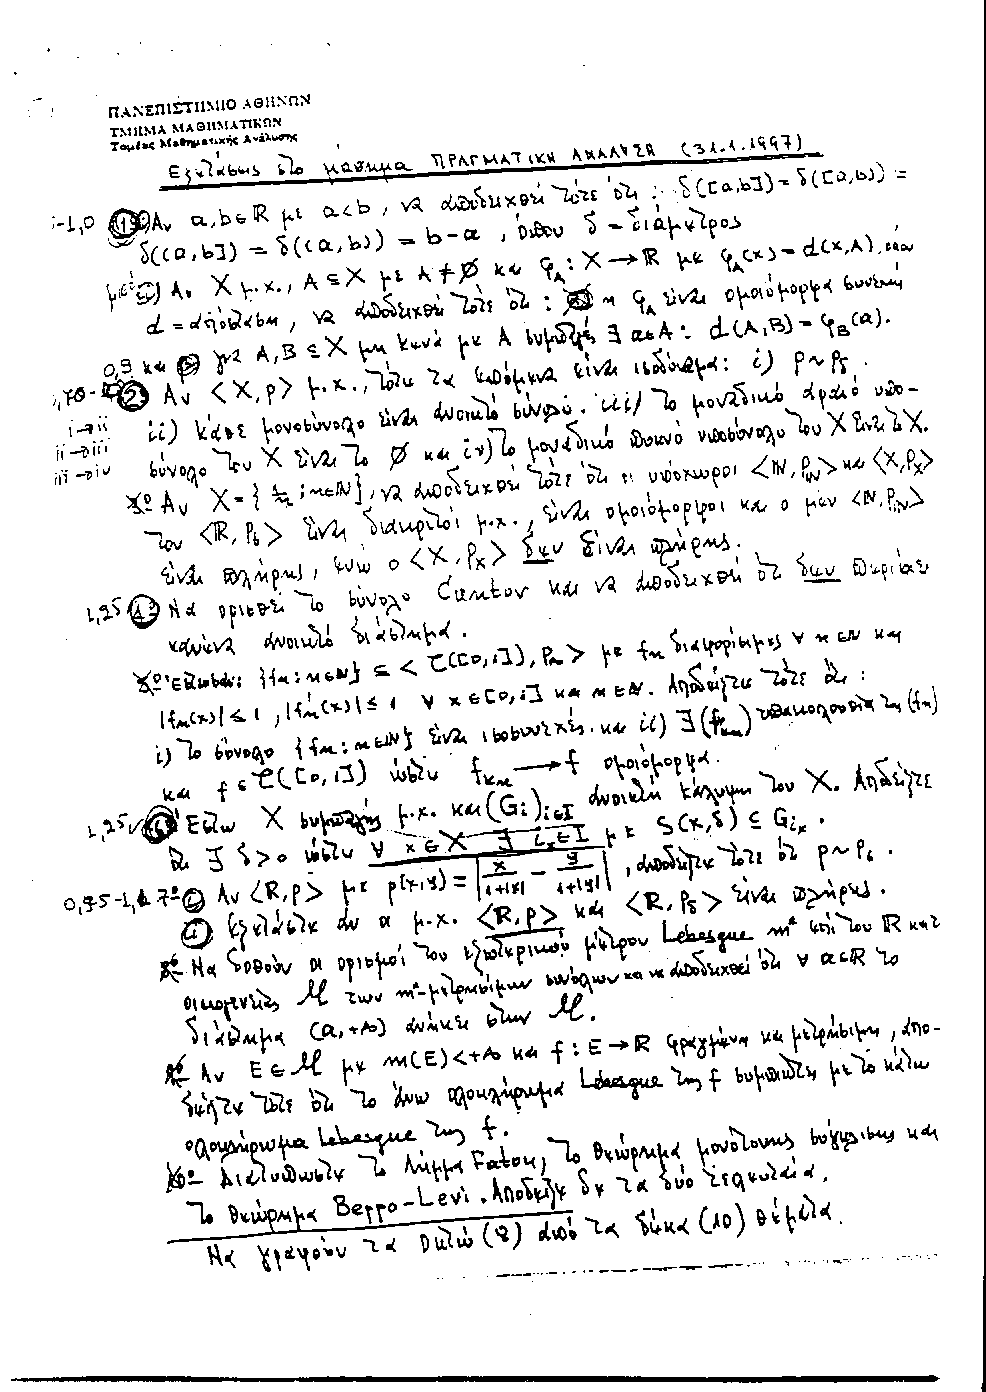 ΠΑΝΕΠΙΣΤΗΜΙΟ ΑΘΗΝΩΝ
ΤΜΗΜΑ ΜΑΘΗΜΑΤΙΚΩΝ
Τομέας Μαθηματικής Ανάλυσης
Εξετάσεις στο μάθημα ΠΡΑΓΜΑΤΙΚΗ ΑΝΑΛΥΣΗ (31.1.1997)
-1,0 1º Αν a,b∈ℝ με a<b, να αποδειχθεί τότε ότι: δ([a,b])=δ([a,b))=
δ((a,b])=δ((a,b))=b-a, όπου δ=διάμετρος
Αν X μ.χ., A⊆X με A≠∅ και φ_A: X→ℝ με φ_A(x)=d(x,A), όπου
d=απόσταση, να αποδειχθεί τότε ότι: η φ_A είναι ομοιόμορφα συνεχής
0,9 και για A,B⊆X μη κενά με A συμπαγές ∃ a∈A: d(A,B)=φ_B(a).
2º Αν <X,ρ> μ.χ., τότε τα επόμενα είναι ισοδύναμα: i) ρ~ρ_δ.
i→ii ii) κάθε μονοσύνολο είναι ανοικτό σύνολο. iii) το μοναδικό αραιό υπο-
ii→iii σύνολο του X είναι το ∅ και iv) το μοναδικό πυκνό υποσύνολο του X είναι το X.
iii→iv
3º Αν X={1/n : n∈ℕ}, να αποδειχθεί τότε ότι οι υπόχωροι <ℕ,ρ_ℕ> και <X,ρ_X>
του <ℝ,ρ_δ> είναι διακριτοί μ.χ., είναι ομοιόμορφοι και ο μεν <ℕ,ρ_ℕ>
είναι πλήρης, ενώ ο <X,ρ_X> δεν είναι πλήρης.
1,25 4º Να ορισθεί το σύνολο Cantor και να αποδειχθεί ότι δεν περιέχει
κανένα ανοικτό διάστημα.
5º Έστωσαν {fn:n∈ℕ}⊆<C([0,1]),ρ∞> με fn διαφορίσιμες ∀ n∈ℕ και
|fn(x)|≤1, |fn'(x)|≤1 ∀ x∈[0,1] και n∈ℕ. Αποδείξτε τότε ότι:
i) το σύνολο {fn:n∈ℕ} είναι ισοσυνεχές. και ii) ∃(f_kn) υπακολουθία της (fn)
και f∈C([0,1]) ώστε f_kn→f ομοιόμορφα.
1,25 6º Έστω X συμπαγής μ.χ. και (Gi)i∈I ανοικτή κάλυψη του X. Αποδείξτε
ότι ∃ δ>0 ώστε ∀ x∈X ∃ i_x∈I με S(x,δ)⊆G_ix.
7º i) Αν <ℝ,ρ> με ρ(x,y)=|x/(1+|x|) - y/(1+|y|)|, αποδείξτε τότε ότι ρ~ρ_δ.
ii) Εξετάστε αν οι μ.χ. <ℝ,ρ> και <ℝ,ρ_δ> είναι πλήρης.
8º Να δοθούν οι ορισμοί του εξωτερικού μέτρου Lebesgue m* επί του ℝ και
οικογένειας M των m*-μετρησίμων συνόλων και να αποδειχθεί ότι ∀ a∈ℝ το
διάστημα (a,+∞) ανήκει στην M.
9º Αν E∈M με m(E)<+∞ και f:E→ℝ φραγμένη και μετρήσιμη, απο-
δείξτε τότε ότι το άνω ολοκλήρωμα Lebesgue της f συμπίπτει με το κάτω
ολοκλήρωμα Lebesgue της f.
10º Διατυπώστε το Λήμμα Fatou, το θεώρημα μονότονης σύγκλισης και
το θεώρημα Beppo-Levi. Αποδείξτε δε τα δύο τελευταία.
Να γραφούν τα οκτώ (8) από τα δέκα (10) θέματα.